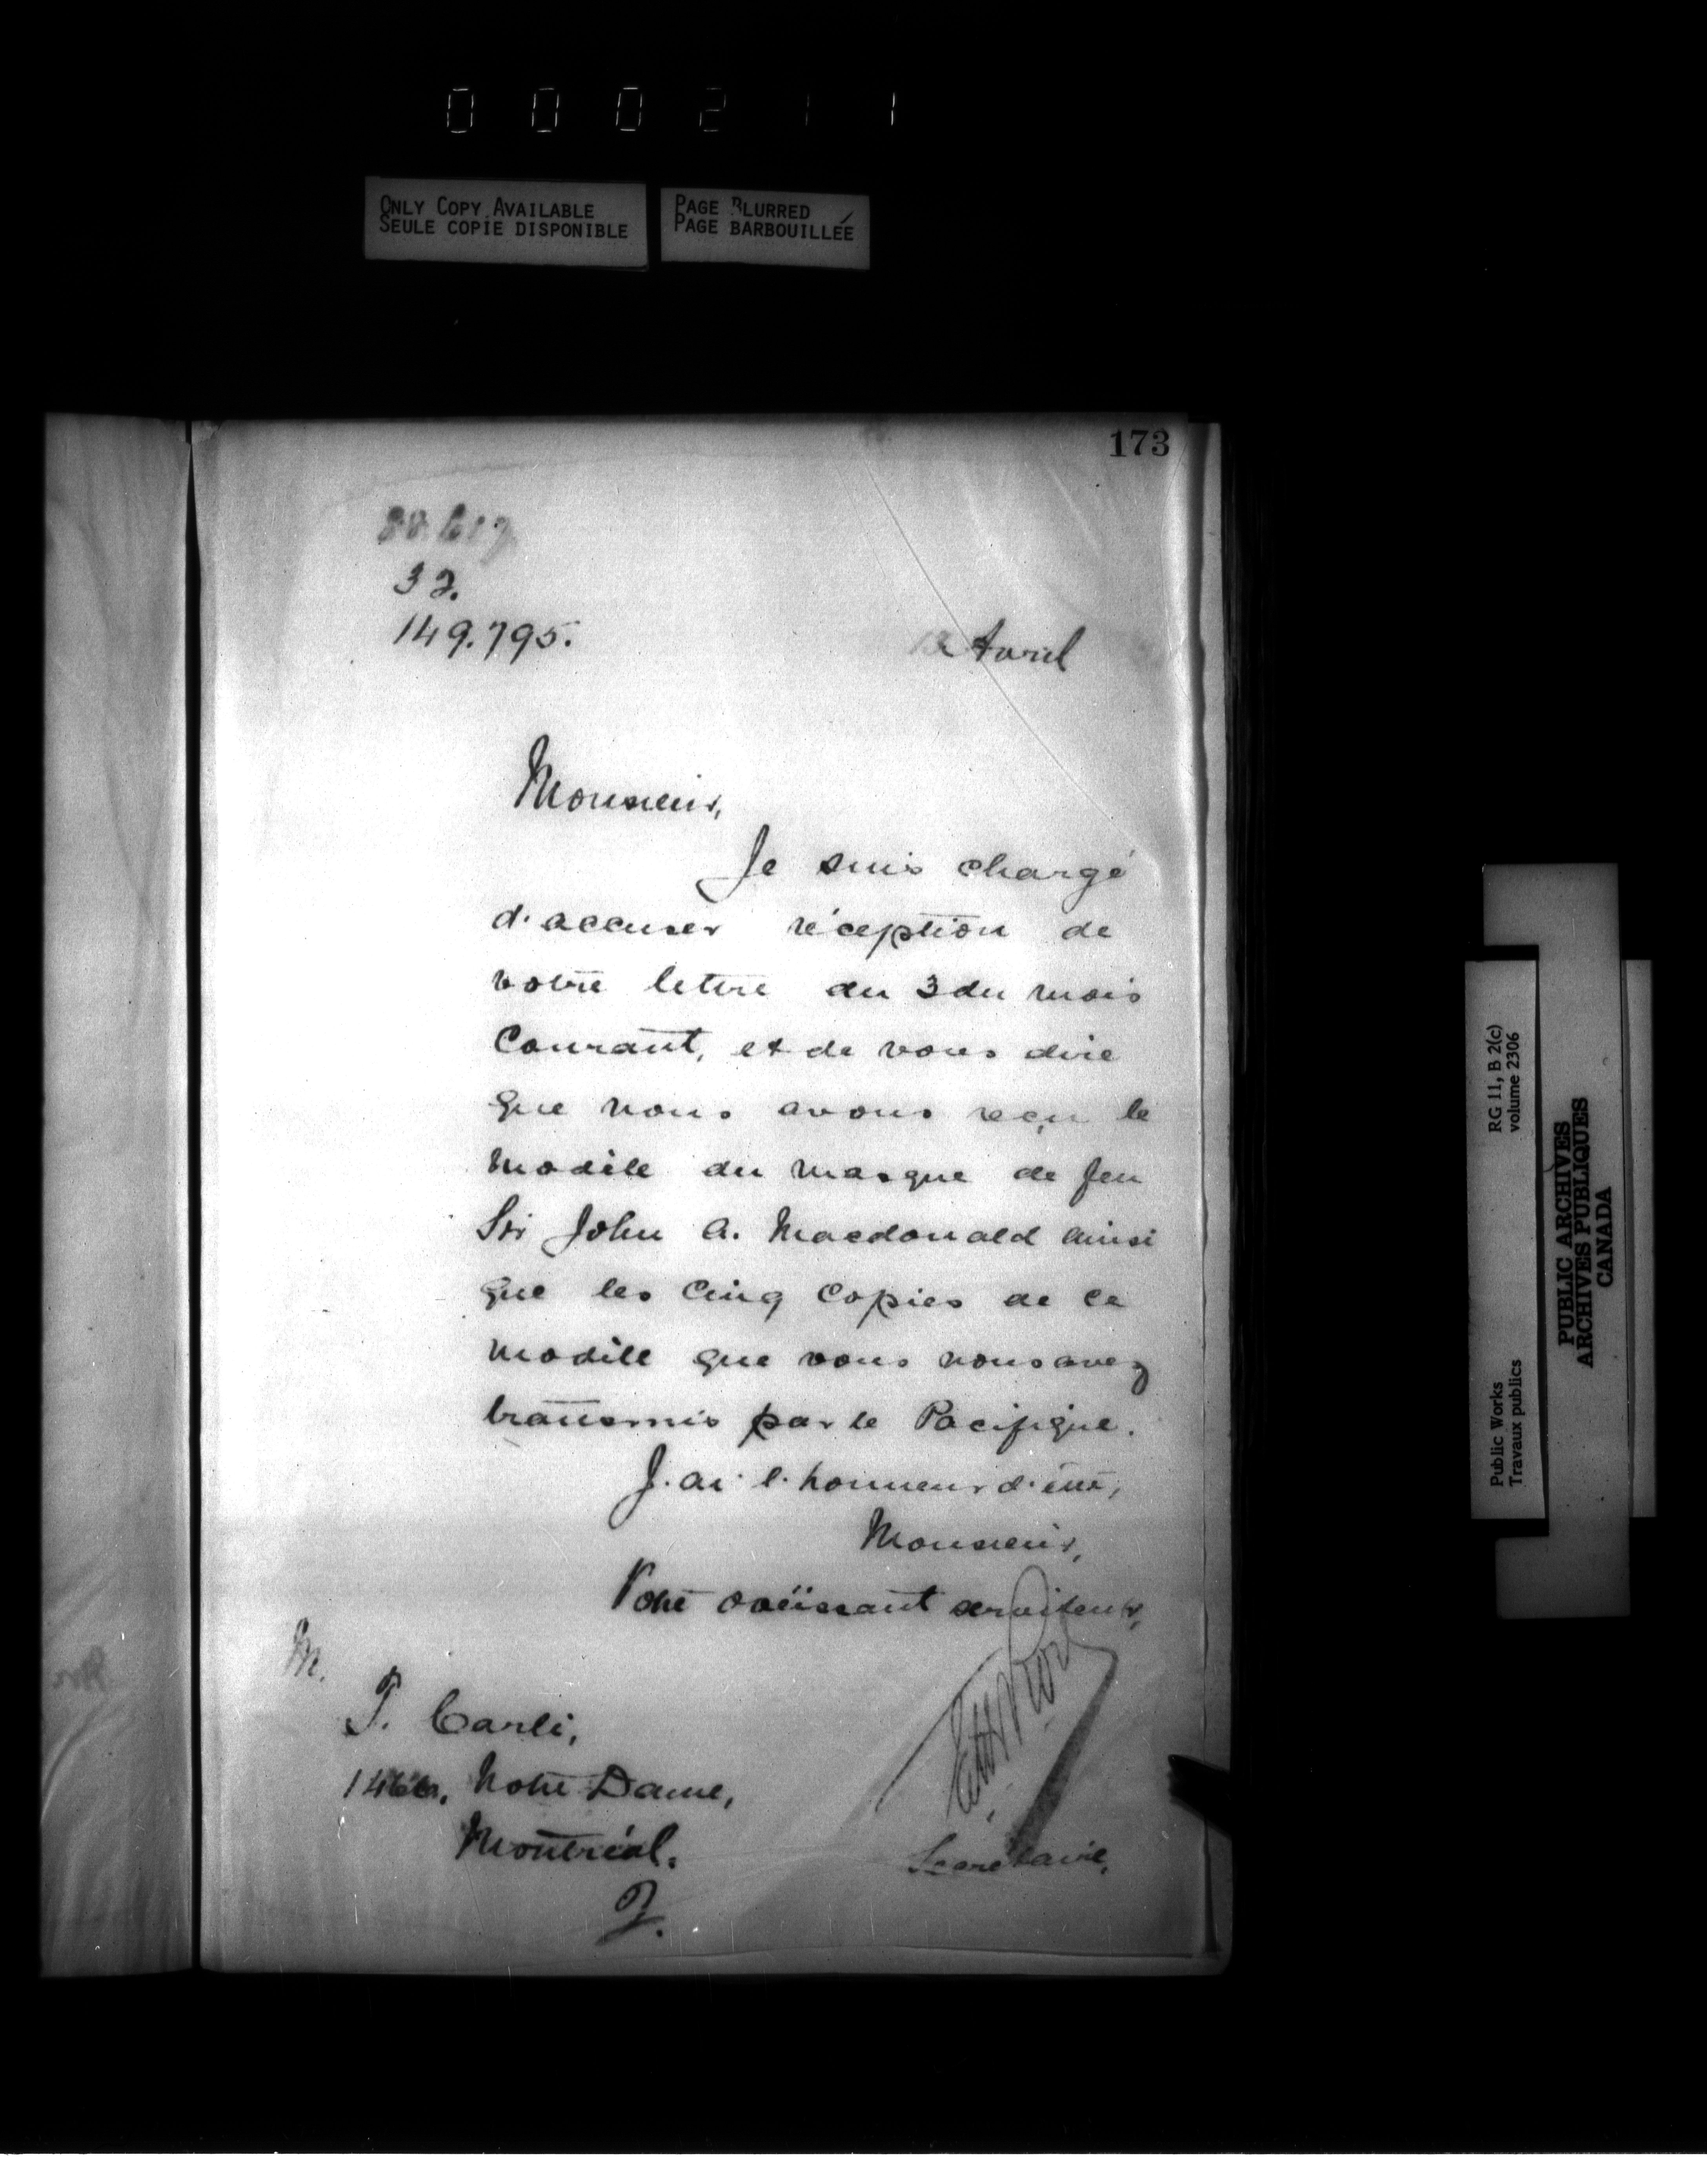 0 0 0 2 1 1
ONLY COPY AVAILABLE
SEULE COPIE DISPONIBLE
PAGE BLURRED
PAGE BARBOUILLÉE
173
32.
149.795.
Avril
Monsieur,
Je suis chargé
d'accuser réception de
votre lettre du 3 du mois
Courant, et de vous dire
que nous avons reçu le
modèle du masque de feu
Sir John A. Macdonald ainsi
que les Cinq Copies de ce
modèle que vous nous avez
transmis par le Pacifique.
J'ai l'honneur d'être,
Monsieur,
Votre obéissant serviteur,
Secrétaire,
M.
T. Carli,
Notre Dame,
Montréal.
RG 11, B 2(c)
volume 2306
Public Works
Travaux publics
PUBLIC ARCHIVES
ARCHIVES PUBLIQUES
CANADA